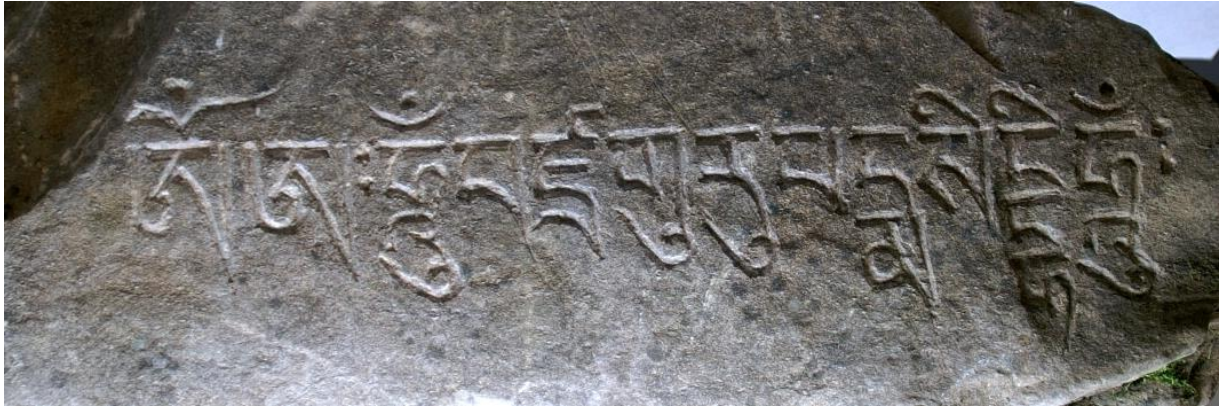 ཨོཾ་ཨཿཧཱུྃ་བཛྲ་གུ་རུ་པདྨ་སིདྡྷི་ཧཱུྃ༔